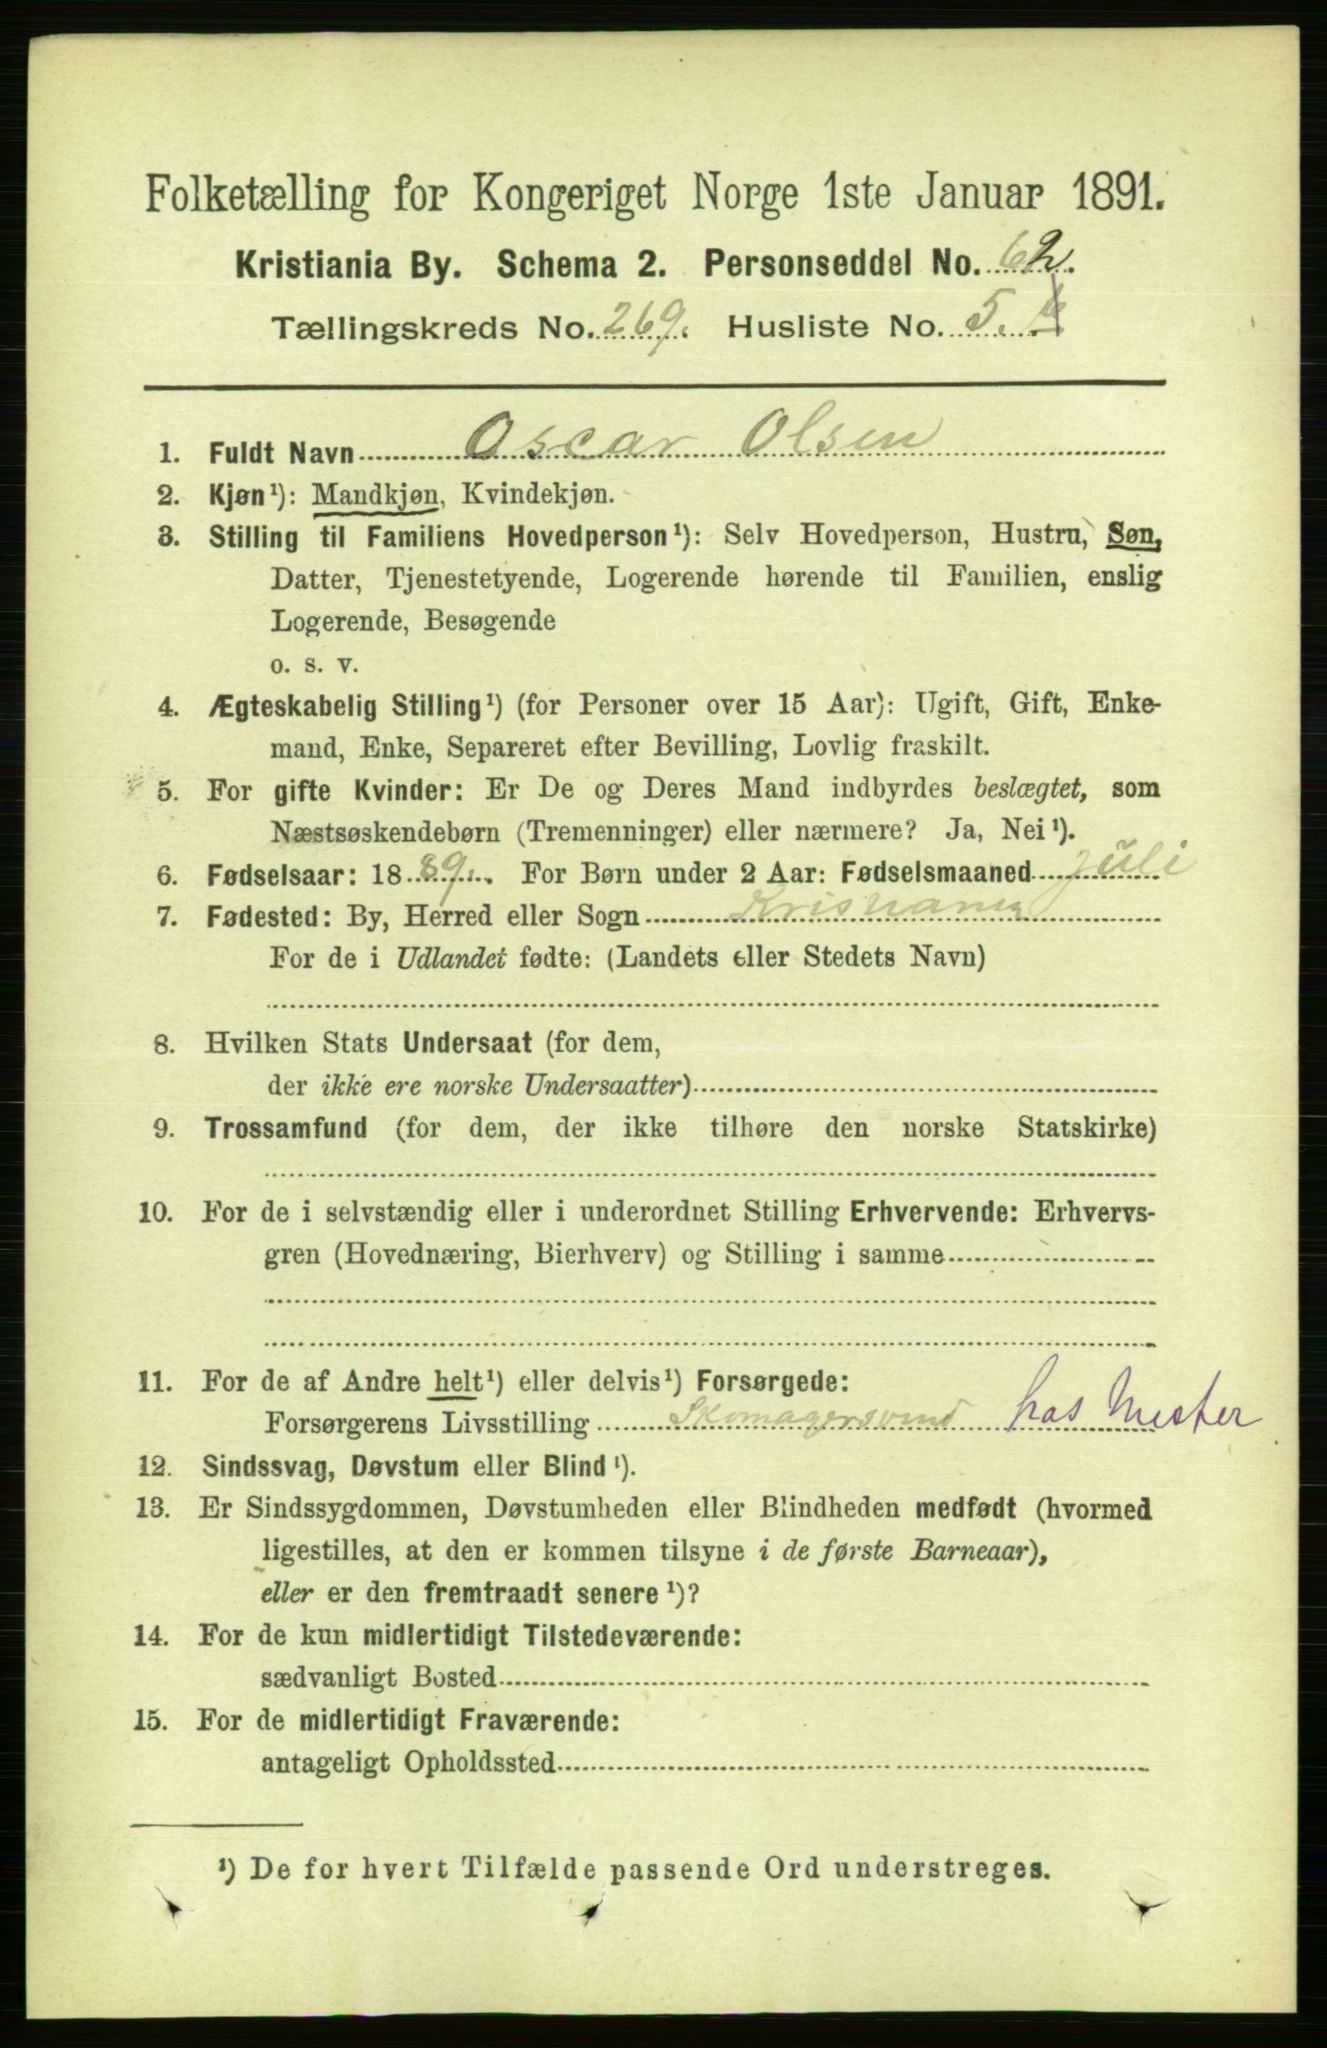 Folketælling for Kongeriget Norge 1ste Januar 1891.
Kristiania By. Schema 2. Personseddel No. 62.
Tællingskreds No. 269. Husliste No. 5.
1. Fuldt Navn Oscar Olsen
2. Kjøn¹): Mandkjøn, Kvindekjøn.
3. Stilling til Familiens Hovedperson¹): Selv Hovedperson, Hustru, Søn,
Datter, Tjenestetyende, Logerende hørende til Familien, enslig
Logerende, Besøgende
o. s. v.
4. Ægteskabelig Stilling¹) (for Personer over 15 Aar): Ugift, Gift, Enke-
mand, Enke, Separeret efter Bevilling, Lovlig fraskilt.
5. For gifte Kvinder: Er De og Deres Mand indbyrdes beslægtet, som
Næstsøskendebørn (Tremenninger) eller nærmere? Ja, Nei¹).
6. Fødselsaar: 1889. For Børn under 2 Aar: Fødselsmaaned Juli
7. Fødested: By, Herred eller Sogn Kristiania
For de i Udlandet fødte: (Landets eller Stedets Navn)
8. Hvilken Stats Undersaat (for dem,
der ikke ere norske Undersaatter)
9. Trossamfund (for dem, der ikke tilhøre den norske Statskirke)
10. For de i selvstændig eller i underordnet Stilling Erhvervende: Erhvervs-
gren (Hovednæring, Bierhverv) og Stilling i samme
11. For de af Andre helt¹) eller delvis¹) Forsørgede:
Forsørgerens Livsstilling Skomagersvend hos Mester
12. Sindssvag, Døvstum eller Blind¹).
13. Er Sindssygdommen, Døvstumheden eller Blindheden medfødt (hvormed
ligestilles, at den er kommen tilsyne i de første Barneaar),
eller er den fremtraadt senere¹)?
14. For de kun midlertidigt Tilstedeværende:
sædvanligt Bosted
15. For de midlertidigt Fraværende:
antageligt Opholdssted
¹) De for hvert Tilfælde passende Ord understreges.